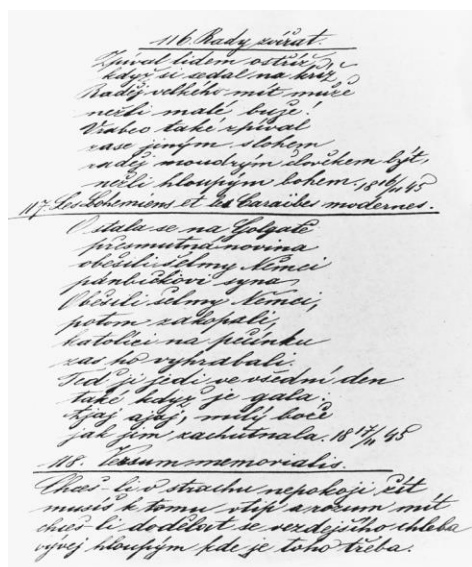 116. Rady zvířat.
Zpíval lidem ostříž
když si sedal na kříž
Raděj velkého mít muže
nežli malé buže!
Vrabec také zpíval
zase jiným slohem
raděj moudrým člověkem být,
nežli hloupým bohem. 18 16/11 45
117. Les Bohemiens et les Caraïbes modernes.
Ostala se na Golgatě
přesmutná novina
oběsili šelmy Němci
pánbíčkovi syna,
Oběsili šelmy Němci,
potom zakopali,
katolíci na pečínku
zas ho vyhrabali.
Teď ji jedí ve všední den
také když je gala.
Ajaj ajaj, milý bože
jak jim zachutnala. 18 17/11 45
118. Versum memorialis.
Chceš-li v strachu nepokoji žít
musíš k tomu vtip a rozum mít
chceš-li dodělat se vezdejšího chleba
vývej hloupým kde je toho třeba.